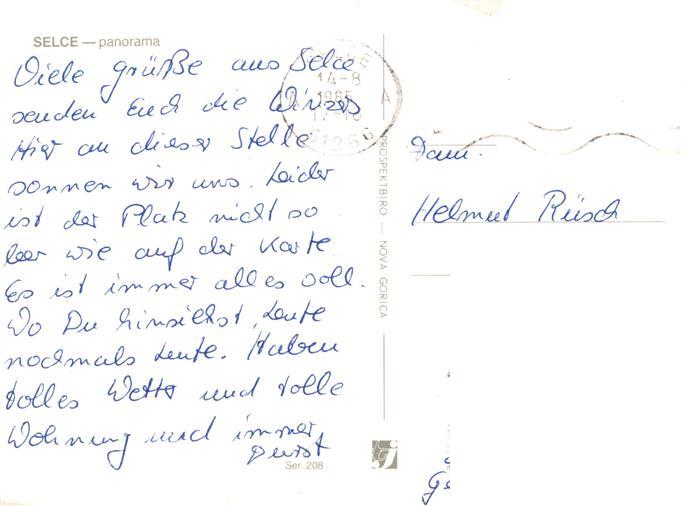 SELCE — panorama
Viele Grüße aus Selce
senden Euch die Winzers
Hier an dieser Stelle
sonnen wir uns. Leider
ist der Platz nicht so
leer wie auf der Karte
Es ist immer alles voll.
Wo Du hinsiehst, Leute
nochmals Leute. Haben
tolles Wetter und tolle
Wohnung und immer
Durst
Ser. 208
14-8
1985
51266
PROSPEKTBIRO — NOVA GORICA
Fam.
Helmut Rüsch